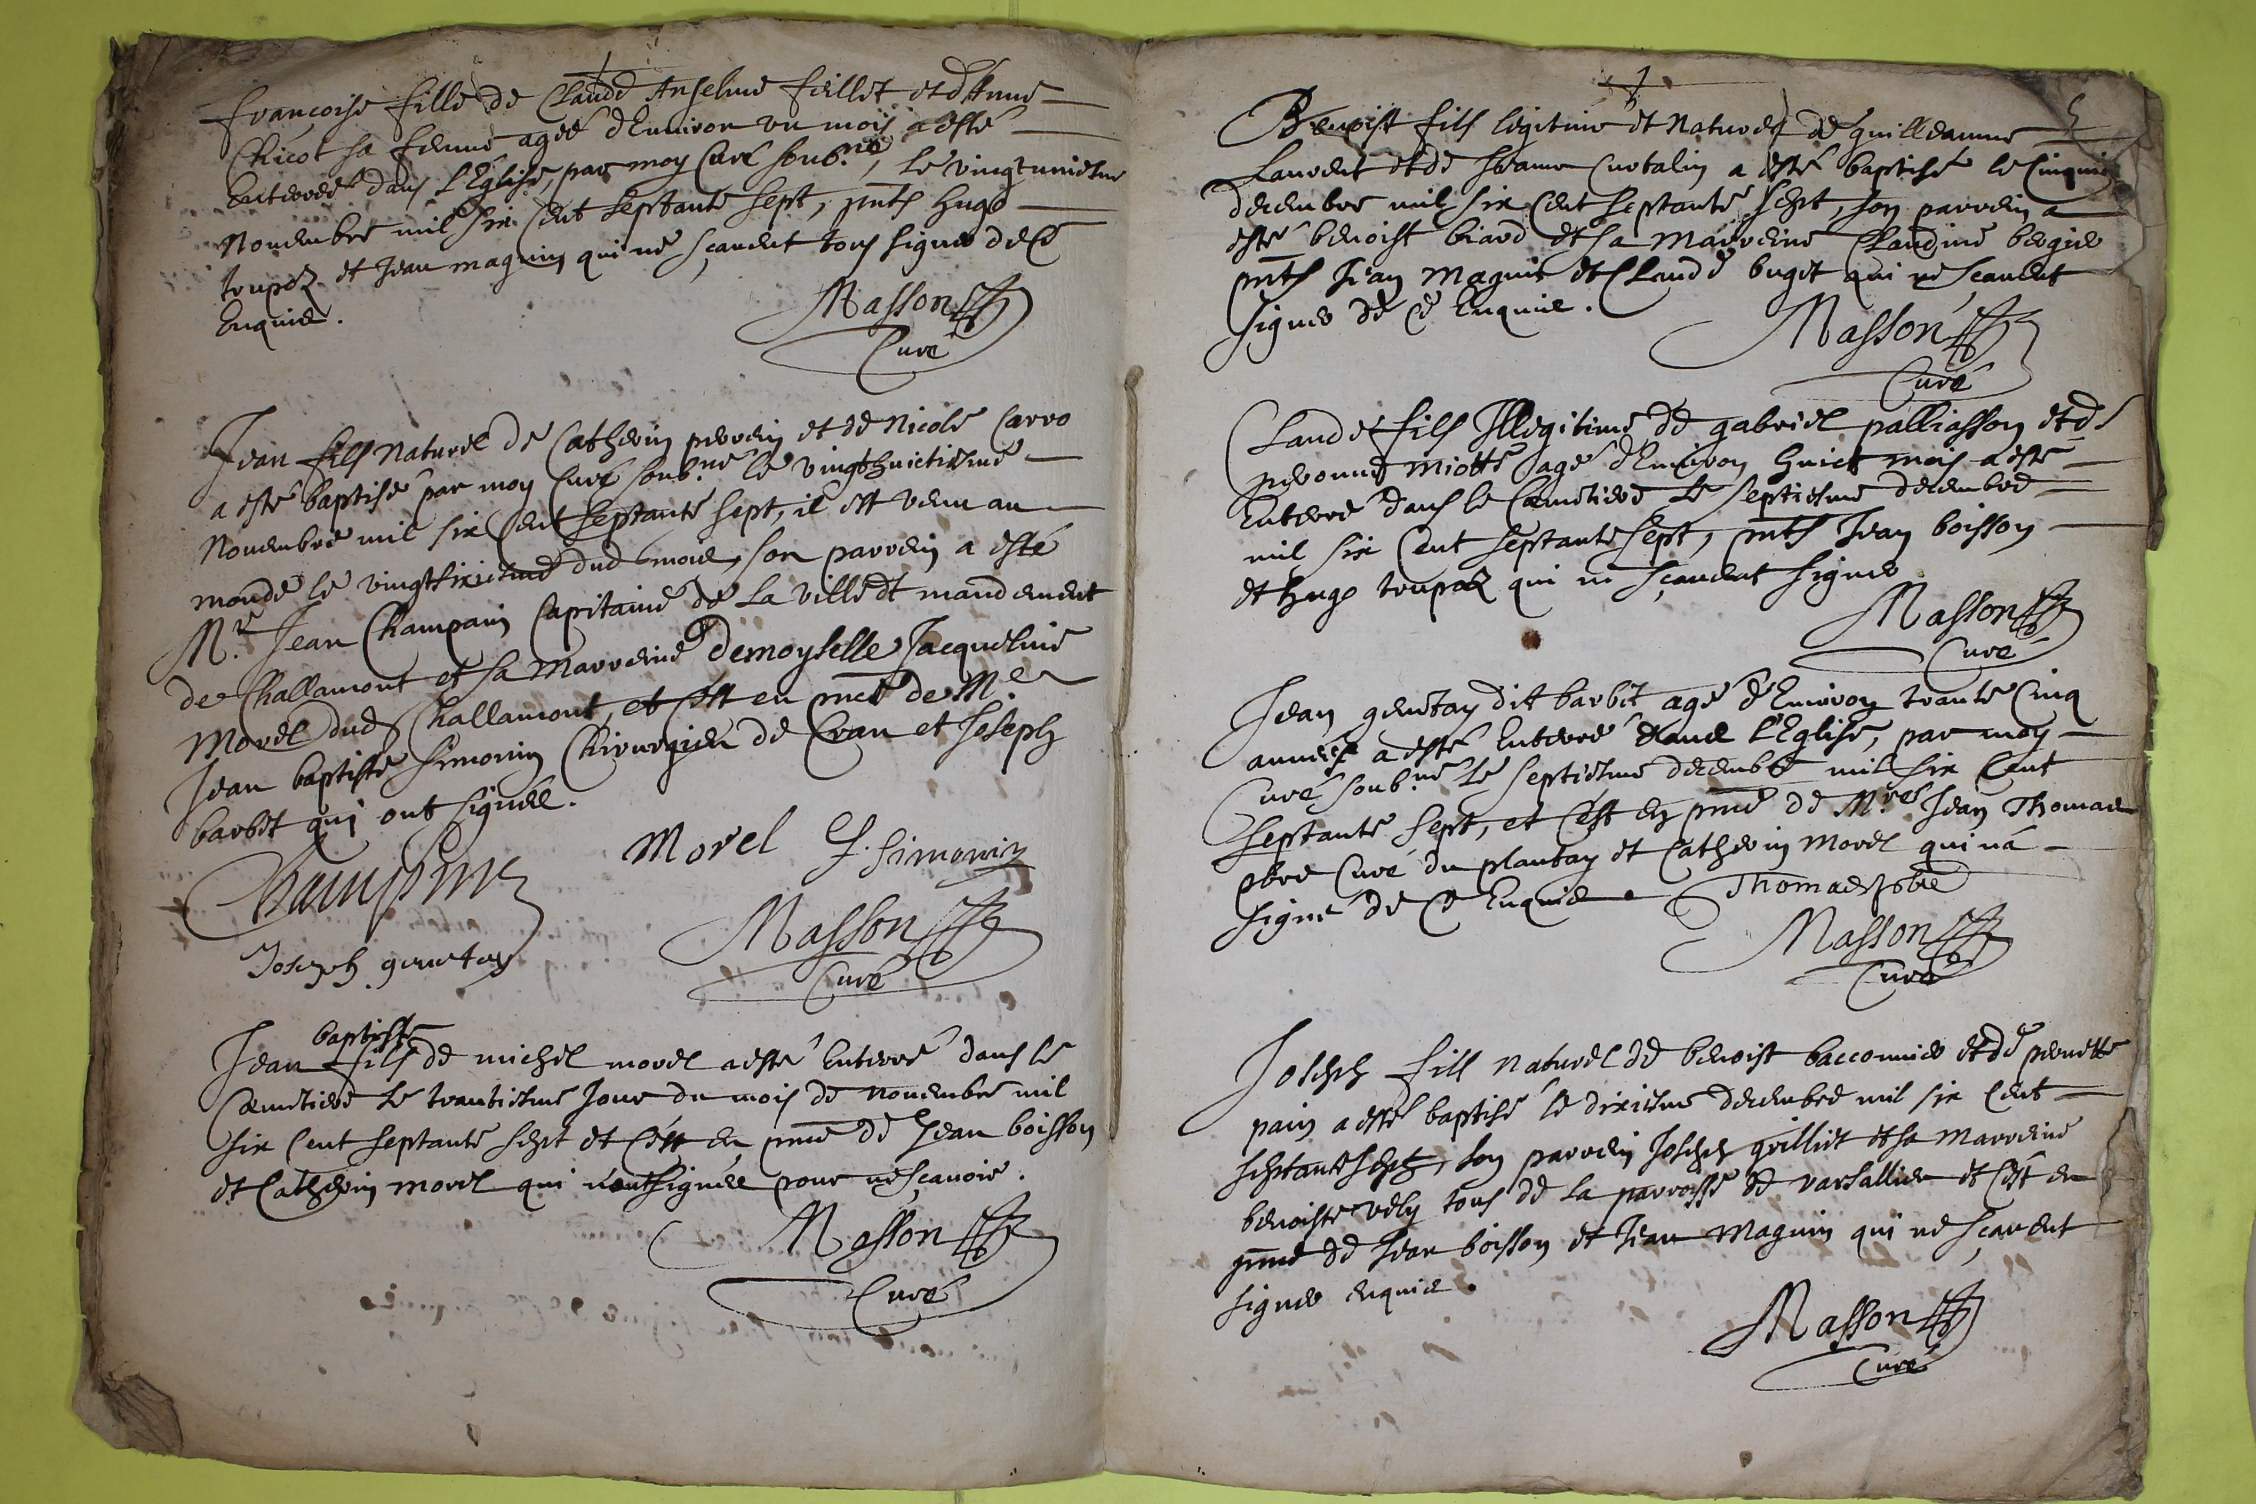 françoise fille de Claude Anselme feillet et d'Anne
Chicot sa femme ageé d'Environ un mois a esté
Enterreé dans l'Eglise, par moy Curé soub.né, le vingtuniesme
Novembre mil six cent septante sept, pnts hugo
toupez et Jean magnin qui ne sçavent tous signer de ce
Enquis.
Masson
Curé
Jean fils naturel de Catherin perrein et de Nicole Carro
a esté baptisé par moy Curé soub.né le vingthuictiesme
Novembre mil six Cent septante sept, il est venu au
monde le vingtsixiesme dud mois, son parrein a esté
M.re Jean Champain Capitaine de la ville et mandement
de Challamont et sa Marreine Demoyselle Jacqueline
Morel dud Challamont, et c'est en pnce de M.e
Jean baptiste simonin Chirurgien de Cran et Joseph
barbet qui ont signés.
Morel J. simonin
Joseph genetay
Masson
Curé
baptiste
Jean fils de michel morel a esté Enterré dans le
Cemetiere le trantiesme Jour du mois de novembre mil
six Cent septante sept et c'est en pnce de Jean boisson
et Catherin morel qui n'ont signés pour ne sçavoir.
Masson
Curé
Benoist fils legitime et Naturel de guilleaume
Laurent et de Jeanne Curtalin a esté baptisé le Cinquie
decembre mil six Cent septante sept, son parrein a
esté benoist biard et sa marreine Claudine bergier
pnts Jean Magnin et Claude buget qui ne scavent
signer de ce Enquis.
Masson
Curé
Claude fils Illegitime de gabriel palliasson et de
peronne miotte agé d'Environ huict mois a esté
Enterré dans le Cemetiere le septiesme decembre
mil six Cent septante sept, pnts Jean boisson
et hugo toupez qui ne sçavent signer
Masson
Curé
Jean genetay dit barbet agé d'Environ trante Cinq
années a esté Enterré dans l'Eglise, par moy
Curé soub.né le septiesme decembre mil six Cent
septante sept, et c'est en pnce de M.res Jean Thomas
pbre Curé du plantay et Catherin morel qui n'a
signé de ce Enquis. Thomas pbre
Masson
Curé
Joseph fils naturel de benoist bacconnier et de pernette
pain a esté baptisé le dixiesme decembre mil six Cent
septante sept, son parrein Joseph grilliet et sa Marreine
benoiste vely tous de la parroisse de varsallieu et c'est en
pnce de Jean boisson et Jean Magnin qui ne sçavent
signer enquis.
Masson
Curé